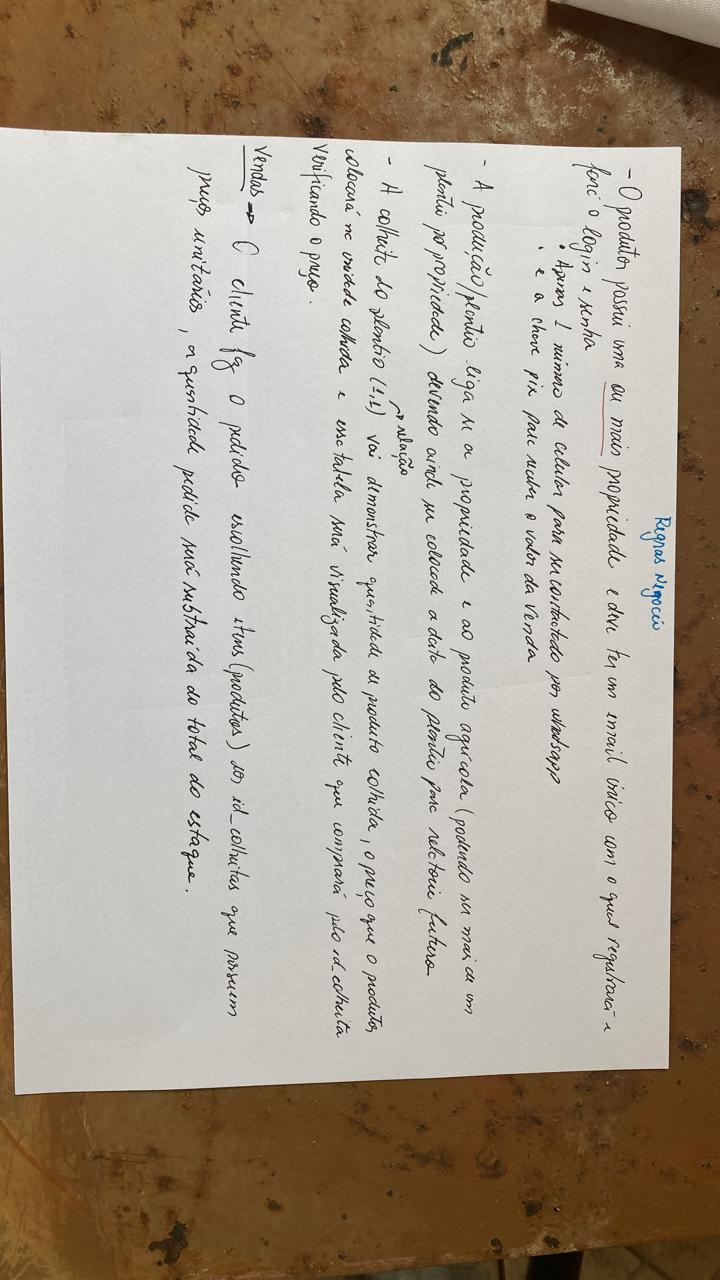 Regras Negocio
- O produtor possui uma ou mais propriedade e deve ter um email único com o qual registrará e
fará o login e senha
• Apenas 1 número de celular para ser contactado por whatsapp
• e a chave pix para receber o valor da venda
- A produção/plantio liga se a propriedade e ao produto agrícola (podendo ser mais de um
plantio por propriedade) devendo ainda ser colocado a data do plantio para relatorio futuro
relação
- A colheita do plantio (1,1) vai demonstrar quantidade de produto colhida, o preço que o produtor
colocará na unidade colhida e essa tabela será visualizada pelo cliente que comprará pelo id_colheita
verificando o preço.
Vendas → O cliente faz o pedido escolhendo itens (produtos) os id_colheitas que possuem
preços unitários, a quantidade pedida será subtraída do total do estoque.